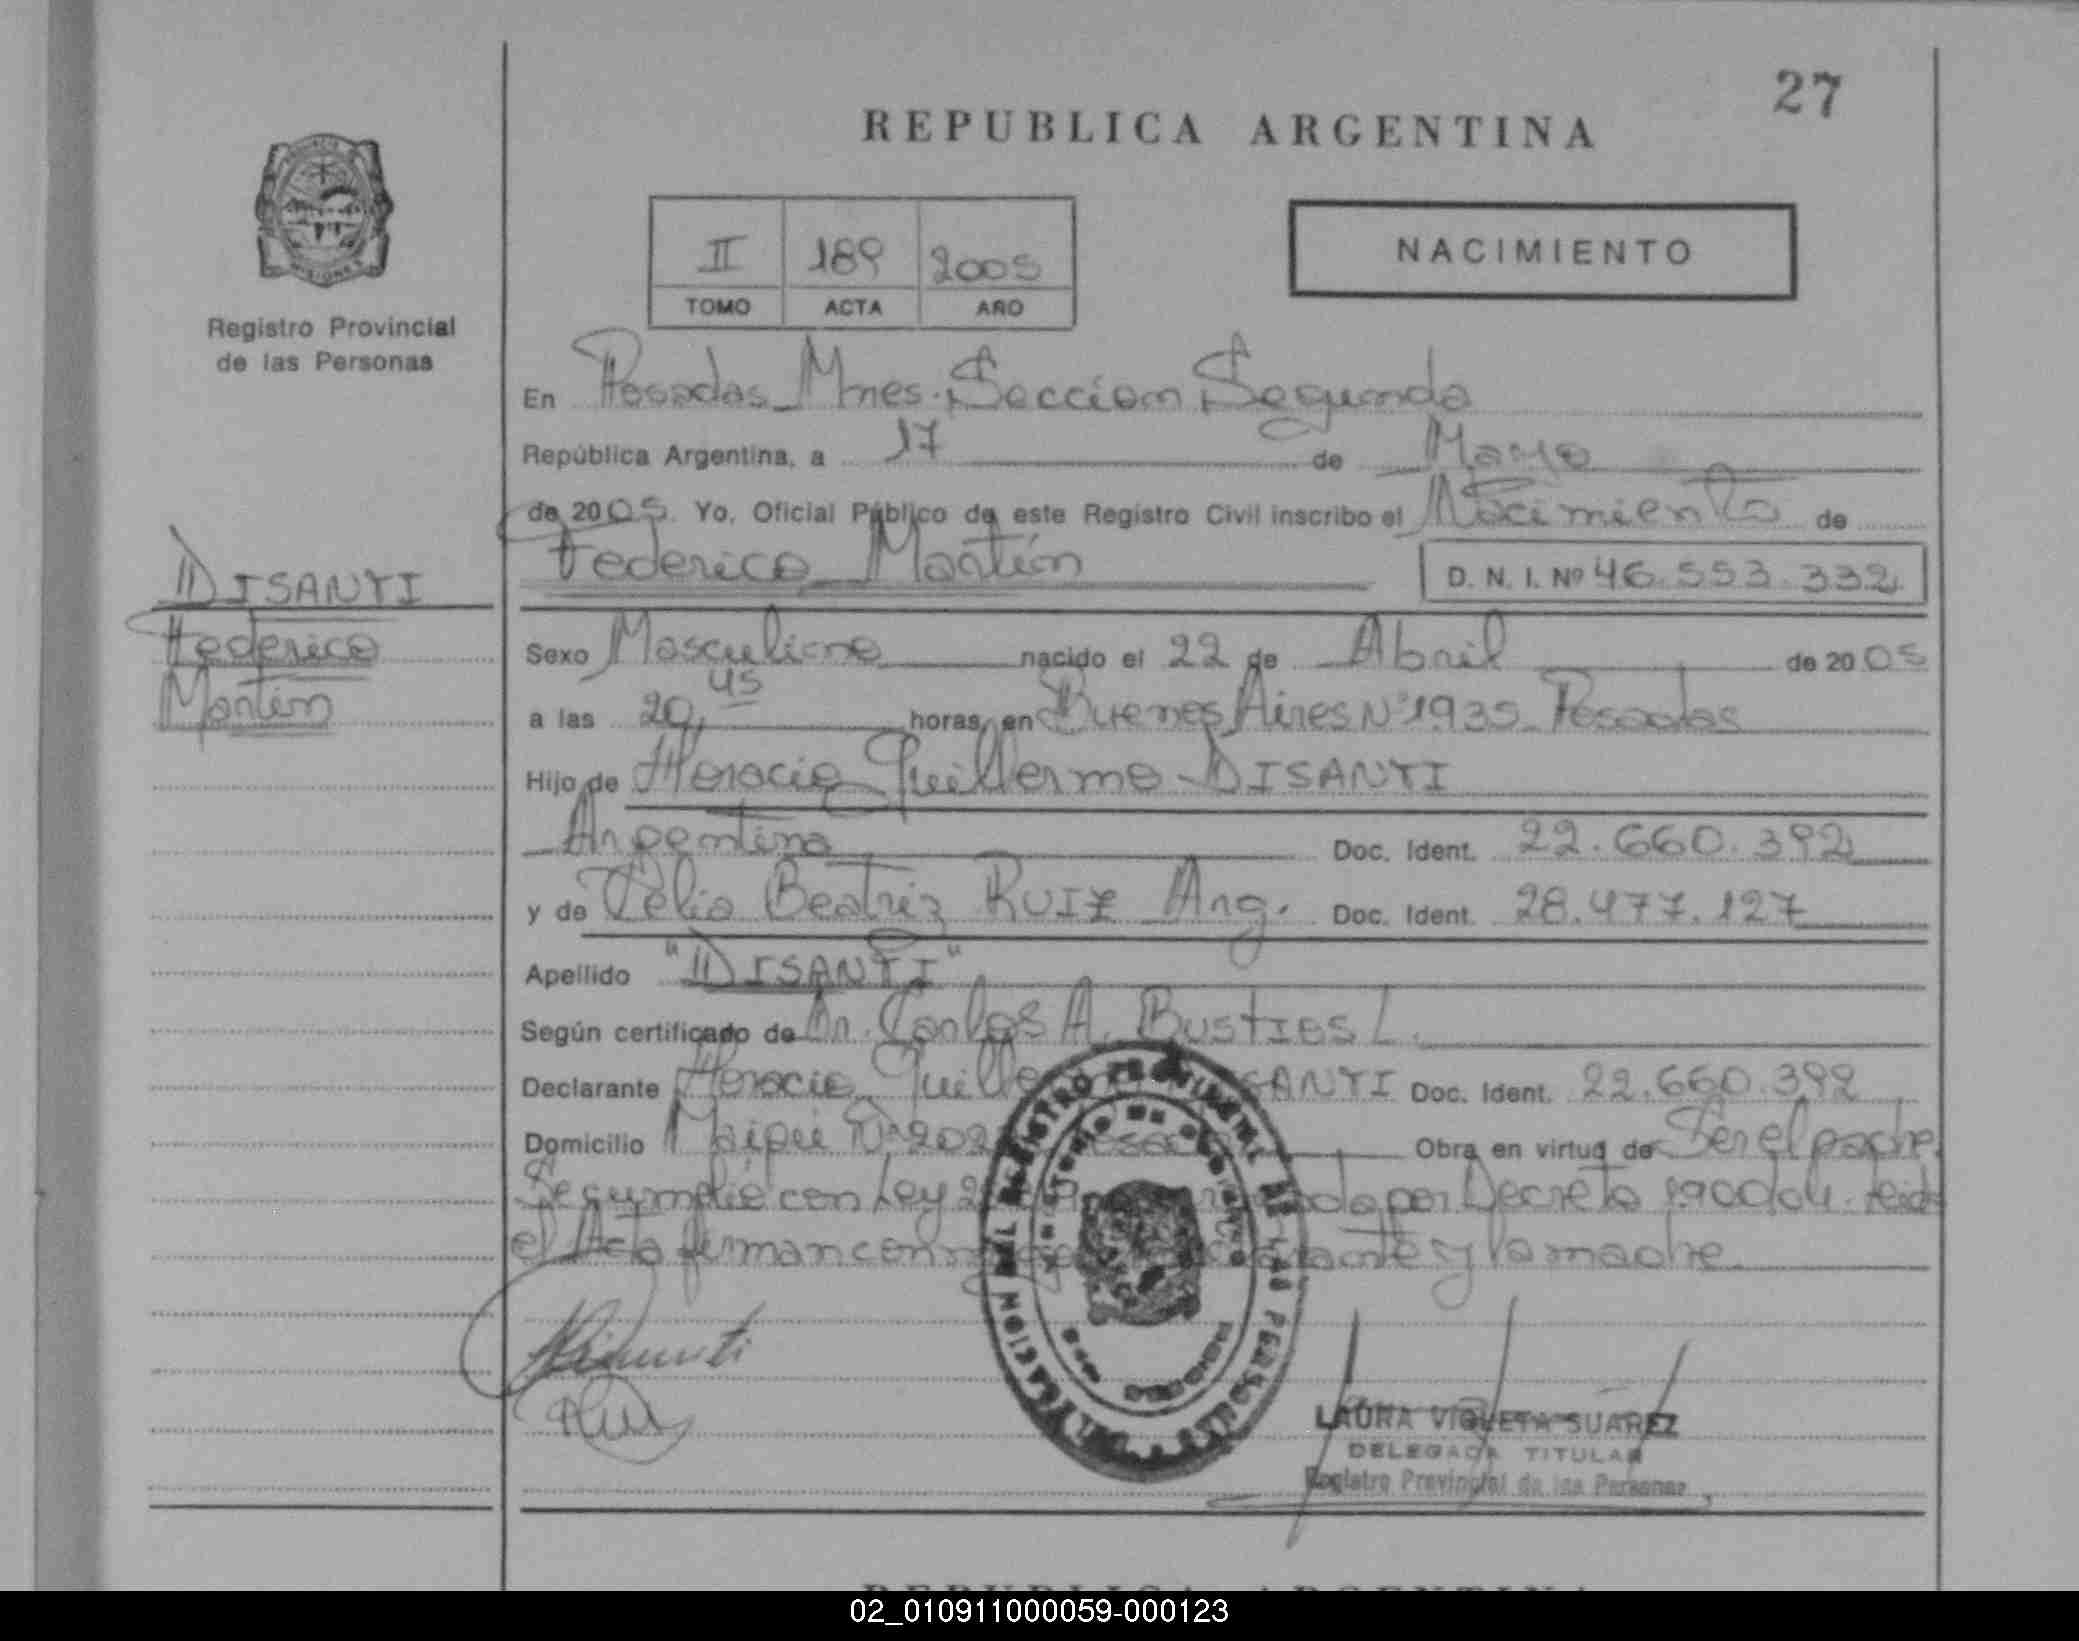 27
REPUBLICA ARGENTINA
II 189 2005
TOMO ACTA AÑO
NACIMIENTO
Registro Provincial
de las Personas
En Posadas Mnes. Sección Segunda
República Argentina, a 17 de Mayo
de 2005. Yo, Oficial Público de este Registro Civil inscribo el Nacimiento de
Federico Martín
D. N. I. Nº 46.553.332
DISANTI
Federico
Martín
Sexo Masculino nacido el 22 de Abril de 2005
a las 20,45 horas, en Buenos Aires Nº 1935 Posadas
Hijo de Horacio Guillermo DISANTI
Argentina Doc. Ident. 22.660.392
y de Celia Beatriz RUIZ Arg. Doc. Ident. 28.477.127
Apellido "DISANTI"
Según certificado de Dr. Carlos A. BUSTIOS L.
Declarante Horacio DISANTI Doc. Ident. 22.660.392
Domicilio Maipú Nº Obra en virtud de Ser el padre.
Se cumplió con Ley por Decreto 190/04. Leída
el Acta firman la madre.
REGISTRO PROVINCIAL DE LAS PERSONAS
LAURA VIOLETA SUAREZ
DELEGADA TITULAR
Registro Provincial de las Personas
REPUBLICA ARGENTINA
02_010911000059-000123